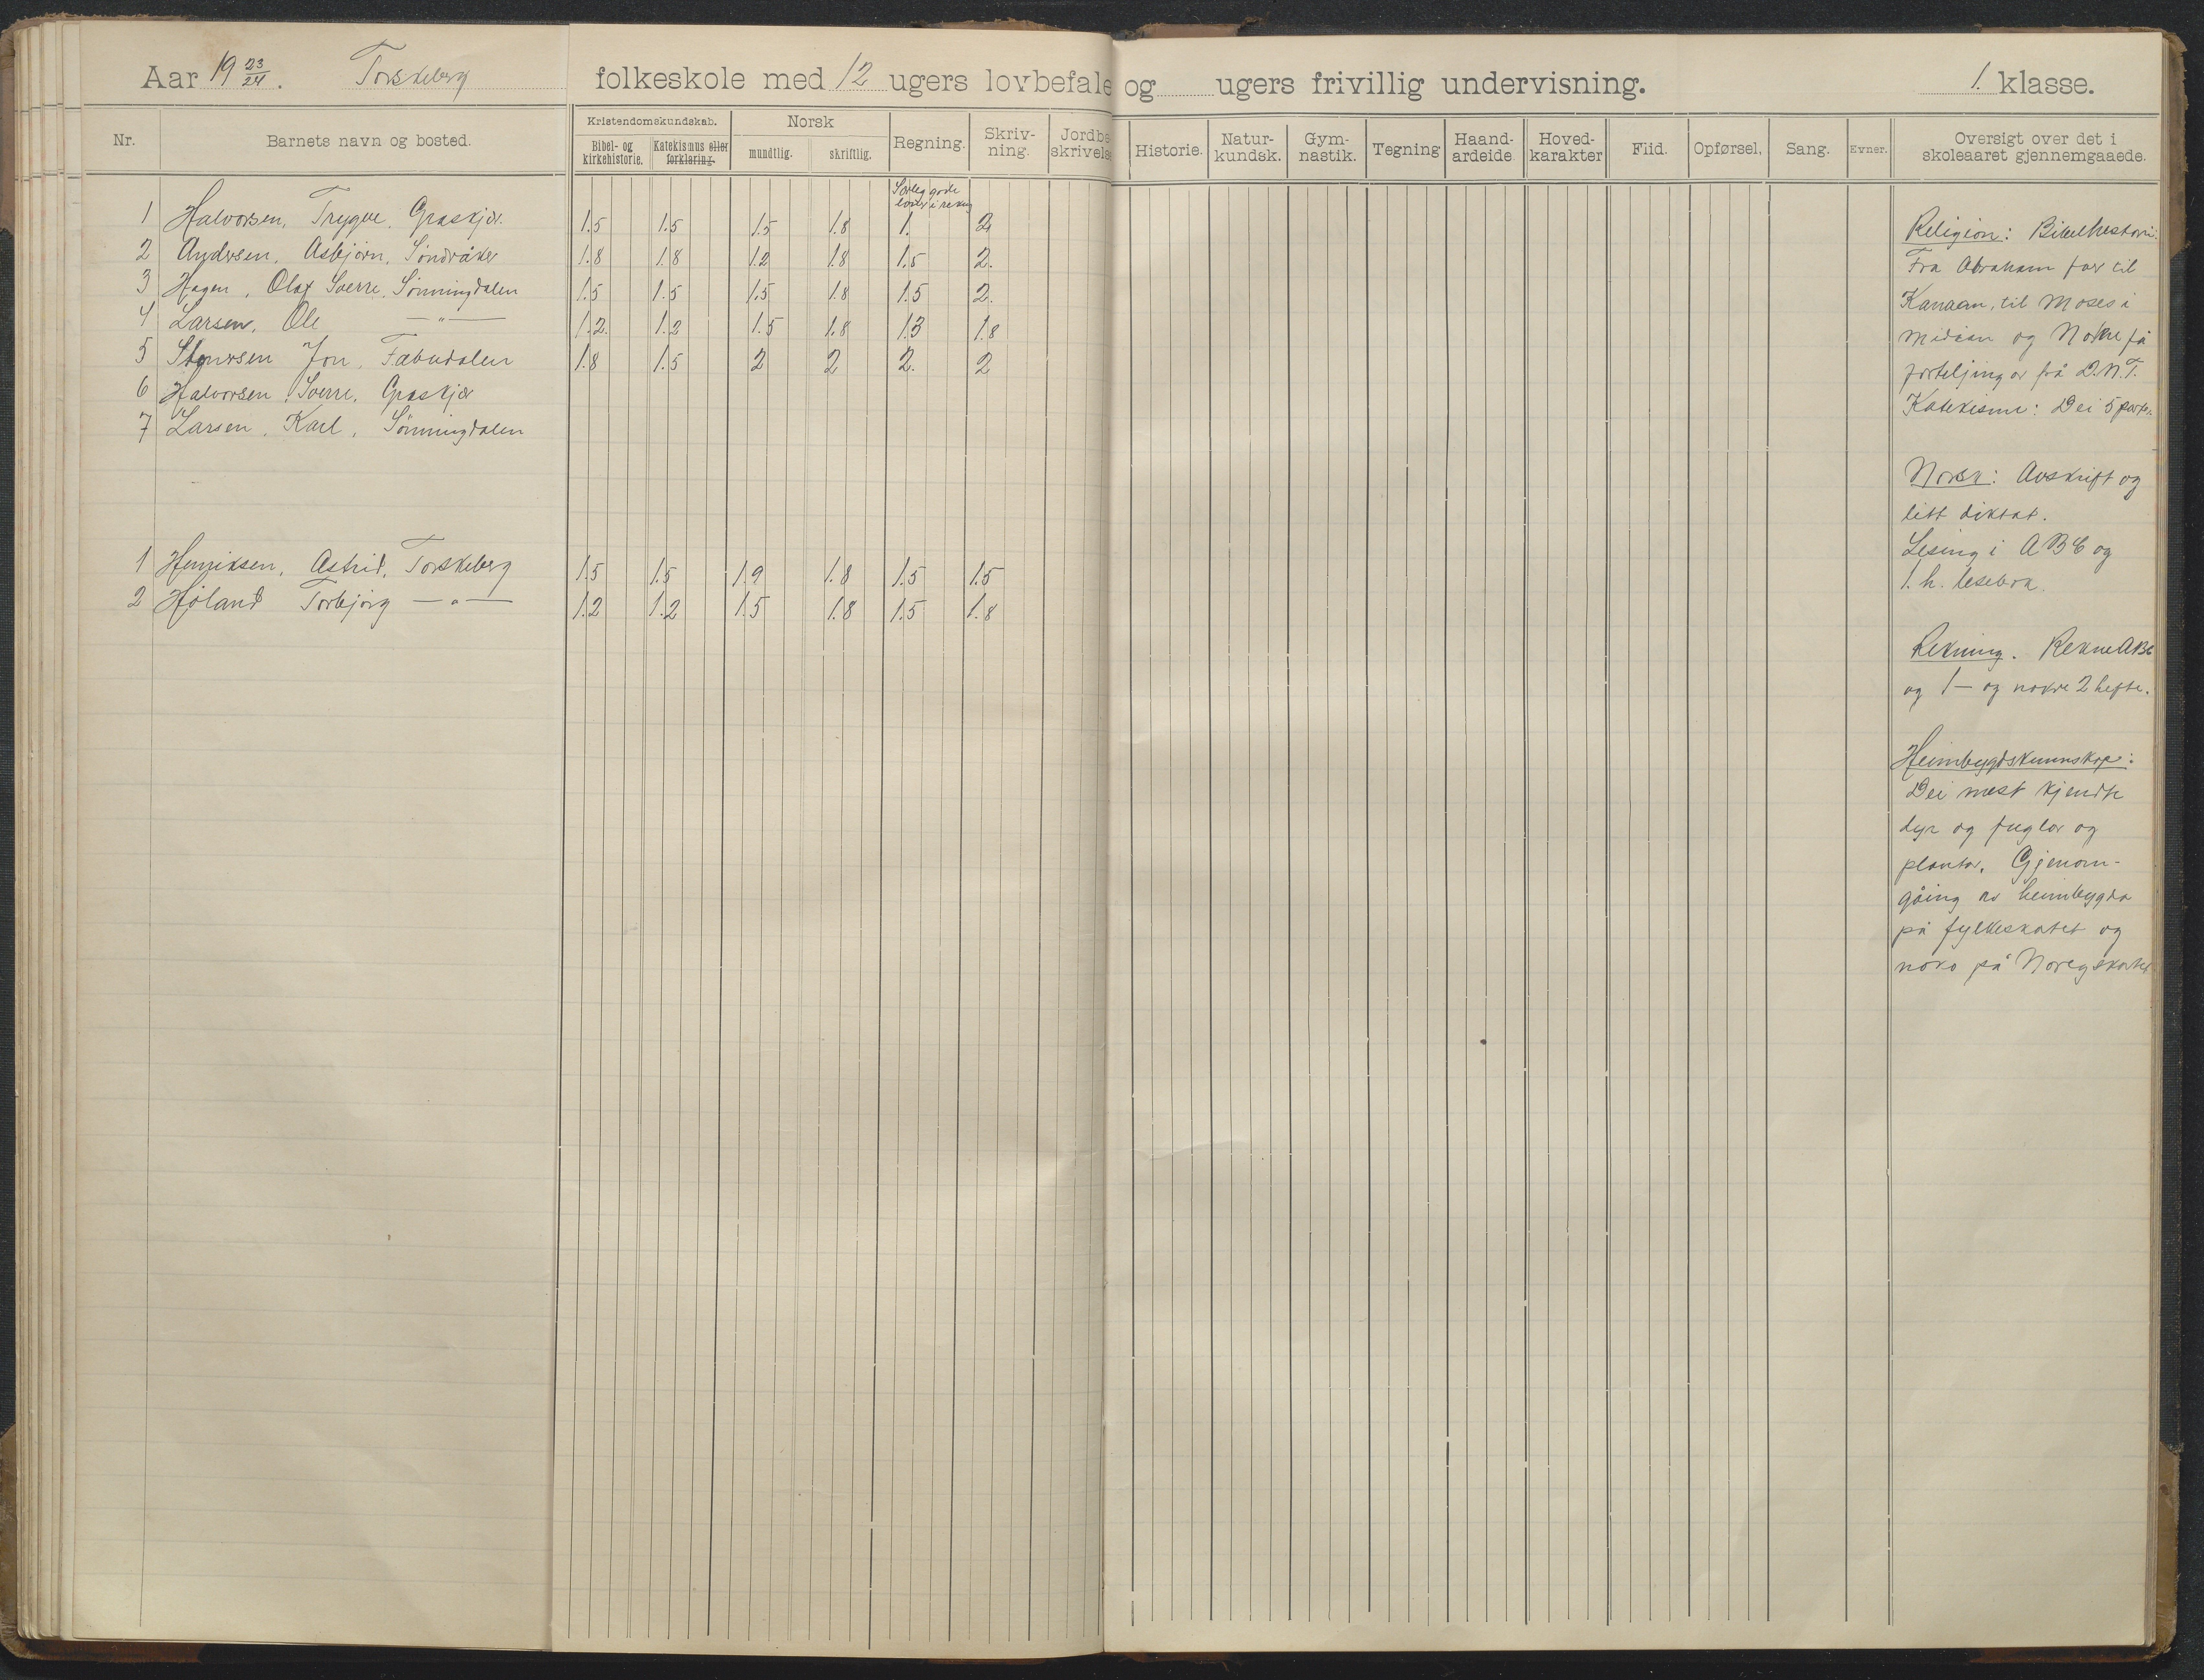 Aar 19 23/24. Torskeberg folkeskole med 12 ugers lovbefale og ugers frivillig undervisning. 1. klasse.
Nr. Barnets navn og bosted. Kristendomskundskab. Bibel- og kirkehistorie. Katekismus eller forklaring. Norsk mundtlig. skriftlig. Regning. Skriv-ning. Jordbe skrivelse Historie. Natur-kundsk. Gym-nastik. Tegning Haand-ardeide Hoved-karakter Flid. Opførsel, Sang. Evner. Oversigt over det i skoleaaret gjennemgaaede.
Særleg gode
i rekning
1 Halvorsen, Trygve, Graskjær. 1.5 1.5 1.5 1.8 1. 2
2 Andersen, Asbjørn, Søndråker 1.8 1.8 1.2 1.8 1.5 2.
3 Hagen, Olaf Sverre, Sønningdalen 1.5 1.5 1.5 1.8 1.5 2.
4 Larsen, Ole — " — 1.2. 1.2 1.5 1.8 1.3 1.8
5 Jon, Fæbudalen 1.8 1.5 2 2 2. 2
6 Halvorsen, Sverre, Graskjær
7 Larsen, Karl, Sønningdalen
1 Henriksen, Astrid, Torskeberg 1.5 1.5 1.9 1.8 1.5 1.5
2 Høland Torbjørg — " — 1.2 1.2 1.5 1.8 1.5 1.8
Religion: Bibelhestori:
Fra Abraham for til
Kanaan, til Moses i
Midian og Nokre få
forteljingar frå D.N.T.
Katekisme: Dei 5 parta.
Norsk: Avskrift og
litt diktat.
Lesing i ABC og
1. h. lesebok.
Rekning. Rekne ABC
og 1 — og nokre 2 hefte.
Heimbygdskunnskap:
Dei mest kjendte
dyr og fuglar og
plantar. Gjenom-
gåing av heimbygda
på fylkeskartet og
noko på Noregskartet